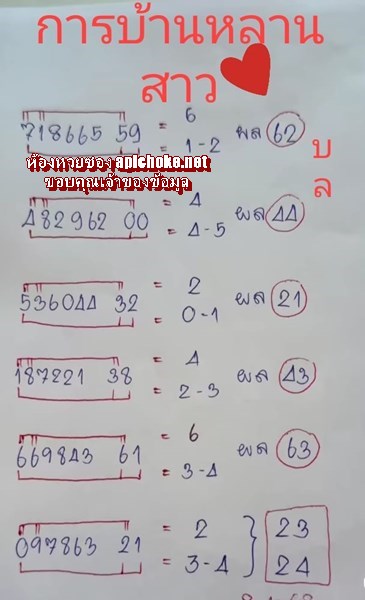 การบ้านหลาน
สาว
718665 59 = 6
= 1-2 ผล 62
บ
ล
ห้องหวยซอง apichoke.net
ขอบคุณเจ้าของข้อมูล
482962 00 = 4
= 4-5 ผล 44
536044 32 = 2
= 0-1 ผล 21
187221 38 = 4
= 2-3 ผล 43
669843 61 = 6
= 3-4 ผล 63
097863 21 = 2
= 3-4
23
24